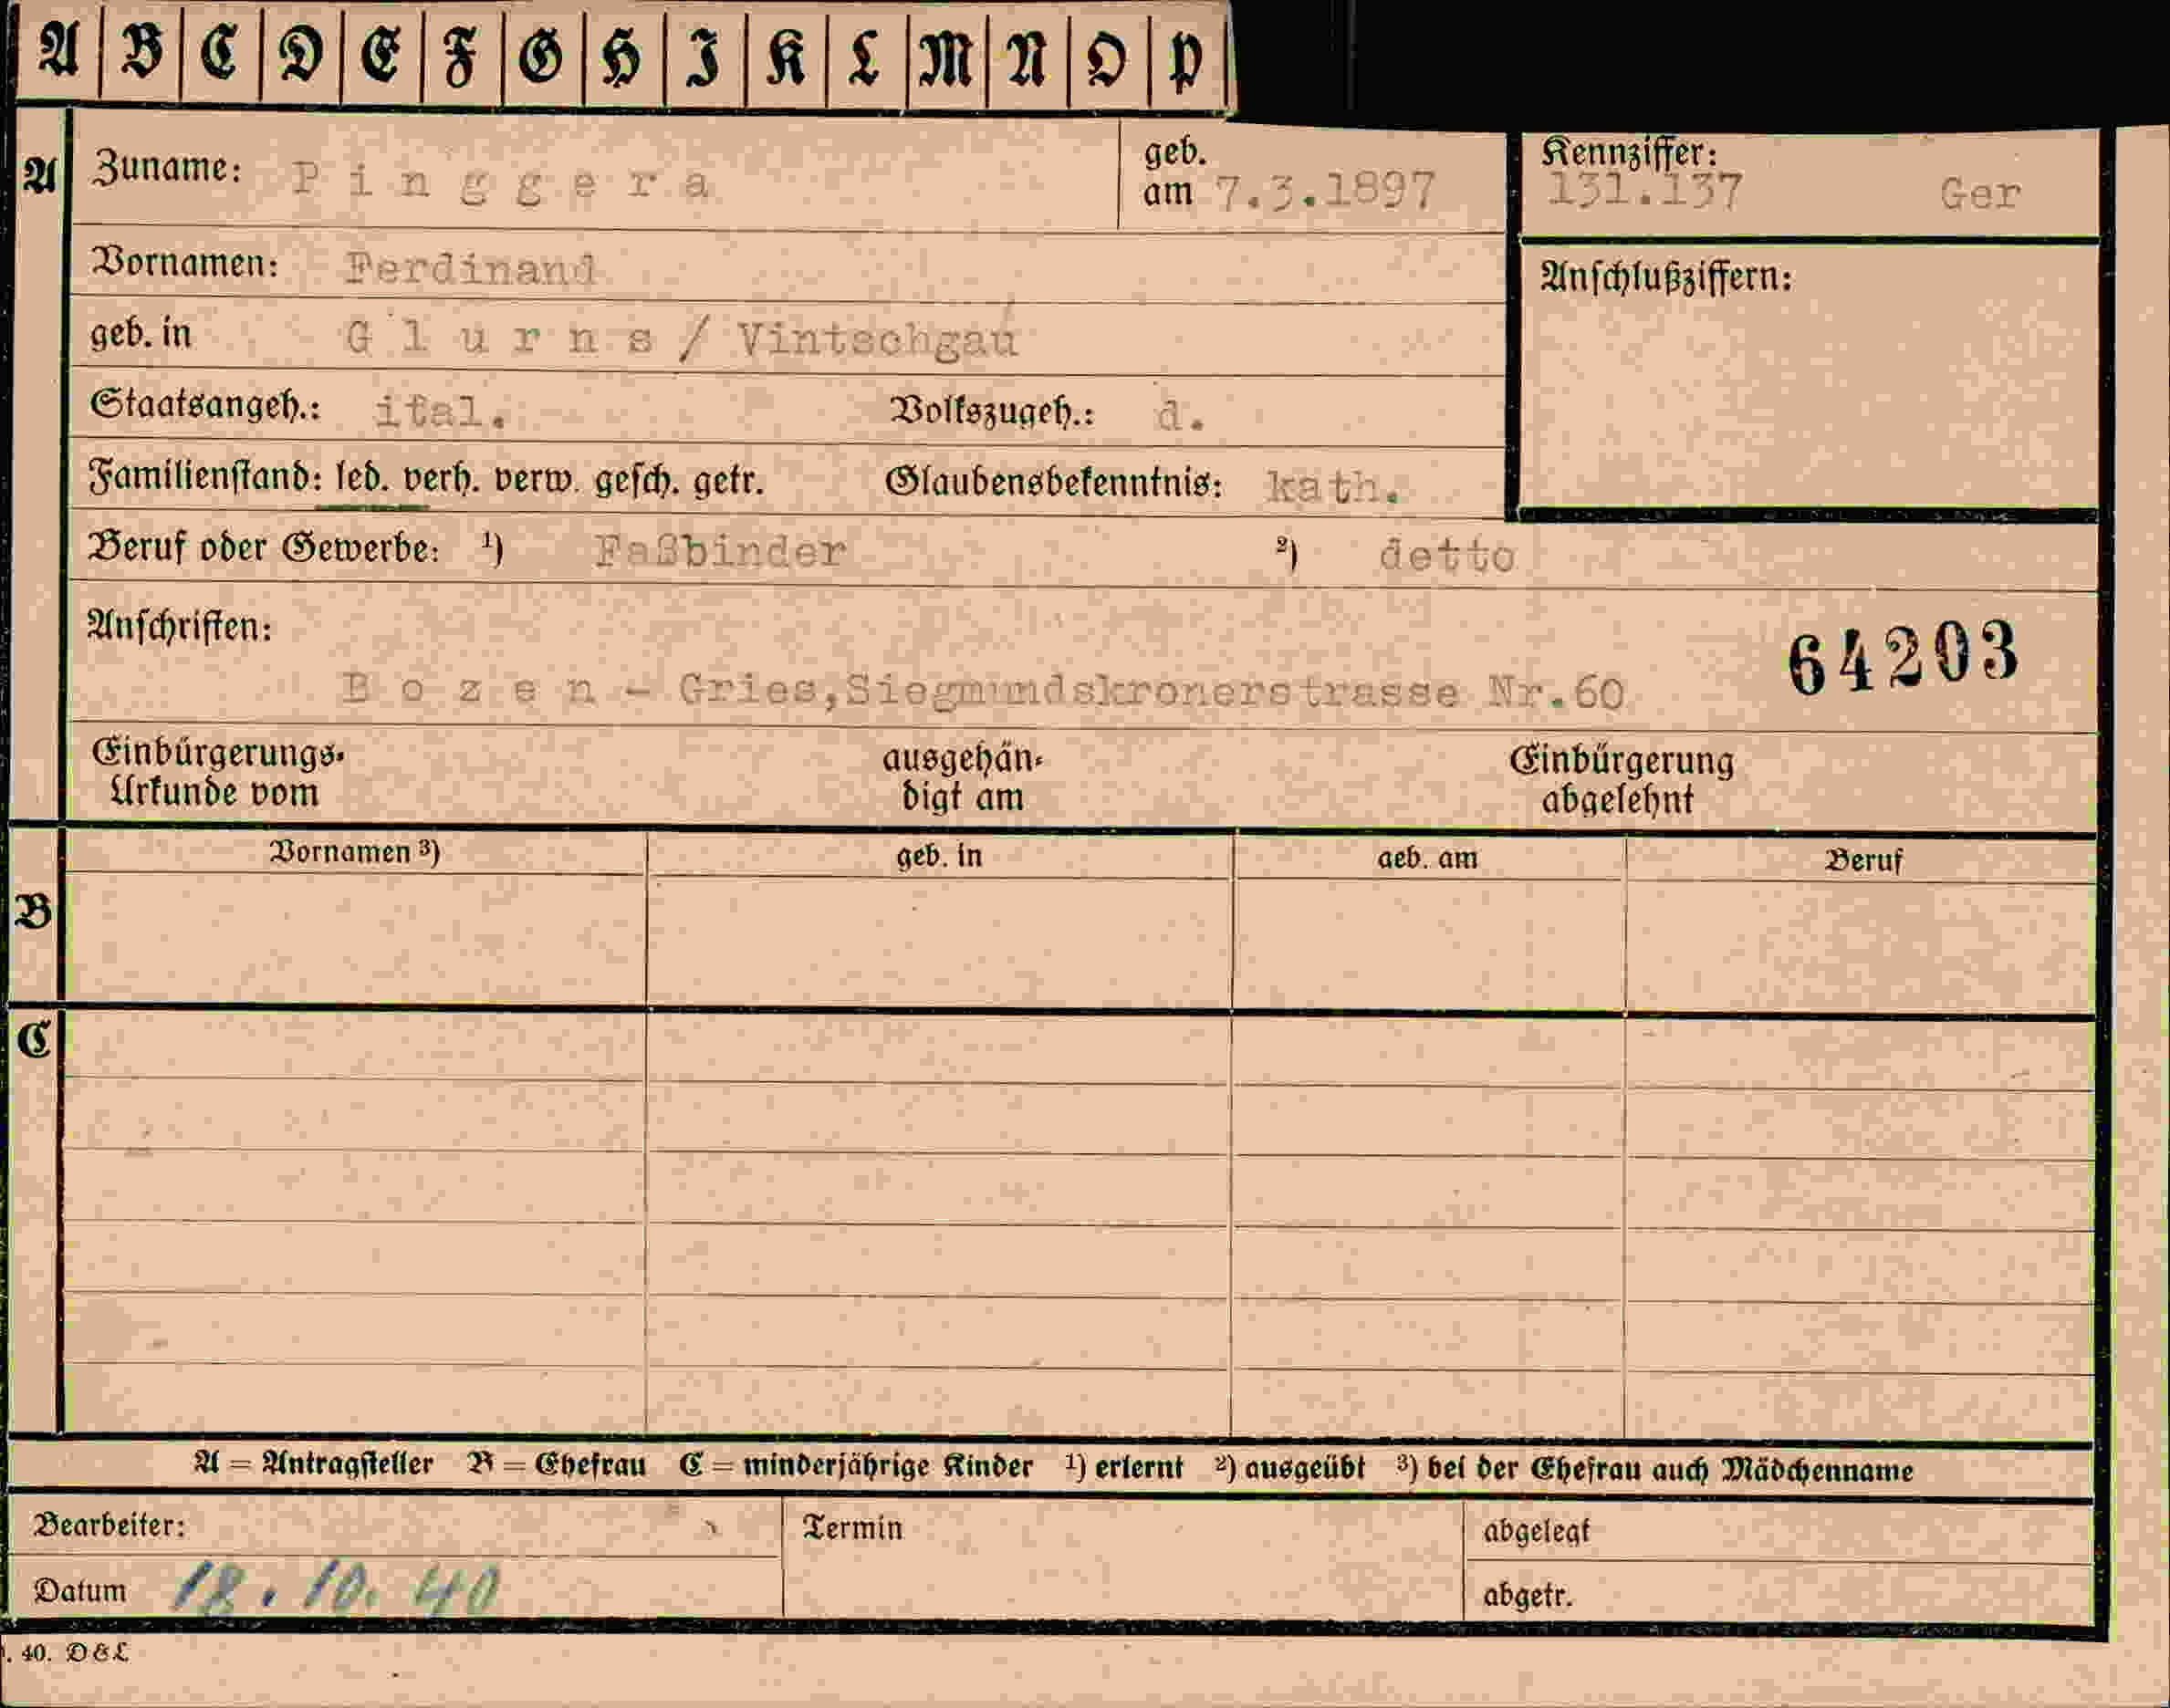 A B C D E F G H I K L M N O P
A Zuname: Pinggera geb. am 7.3.1897 Kennziffer: 131.137 Ger
Vornamen: Ferdinand
Anschlußziffern:
geb. in Glurns / Vintschgau
Staatsangeh.: ital. Volkszugeh.: d.
Familienstand: led. verh. verw. gesch. getr. Glaubensbekenntnis: kath.
Beruf oder Gewerbe: 1) Faßbinder 2) detto
Anschriften:
64203
Bozen - Gries,Siegmundskronerstrasse Nr.60
Einbürgerungs- ausgehän- Einbürgerung
Urkunde vom digt am abgelehnt
Vornamen 3) geb. in geb. am Beruf
B
C
A = Antragsteller B = Ehefrau C = minderjährige Kinder 1) erlernt 2) ausgeübt 3) bei der Ehefrau auch Mädchenname
Bearbeiter: Termin abgelegt
Datum 18.10.40 abgetr.
. 40. D&L